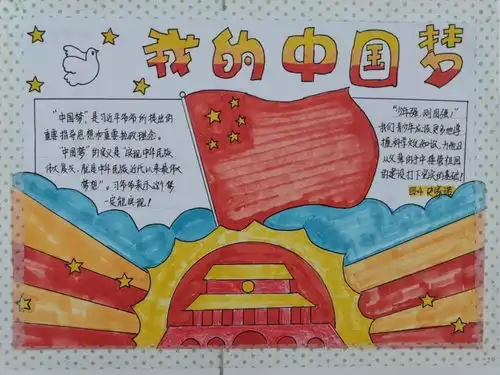 我的中国梦
"中国梦"是习近平爷爷所提出的
重要指导思想和重要执政理念。
"中国梦"的定义是"实现中华民族
伟大复兴，就是中华民族近代以来最伟大
梦想"。习爷爷表示这个梦
一定能实现！
"少年强，则国强！"
我们青少年应该更多地掌
握科学文化知识，为他日
从父辈的手中接替祖国
的建设打下坚实的基础！